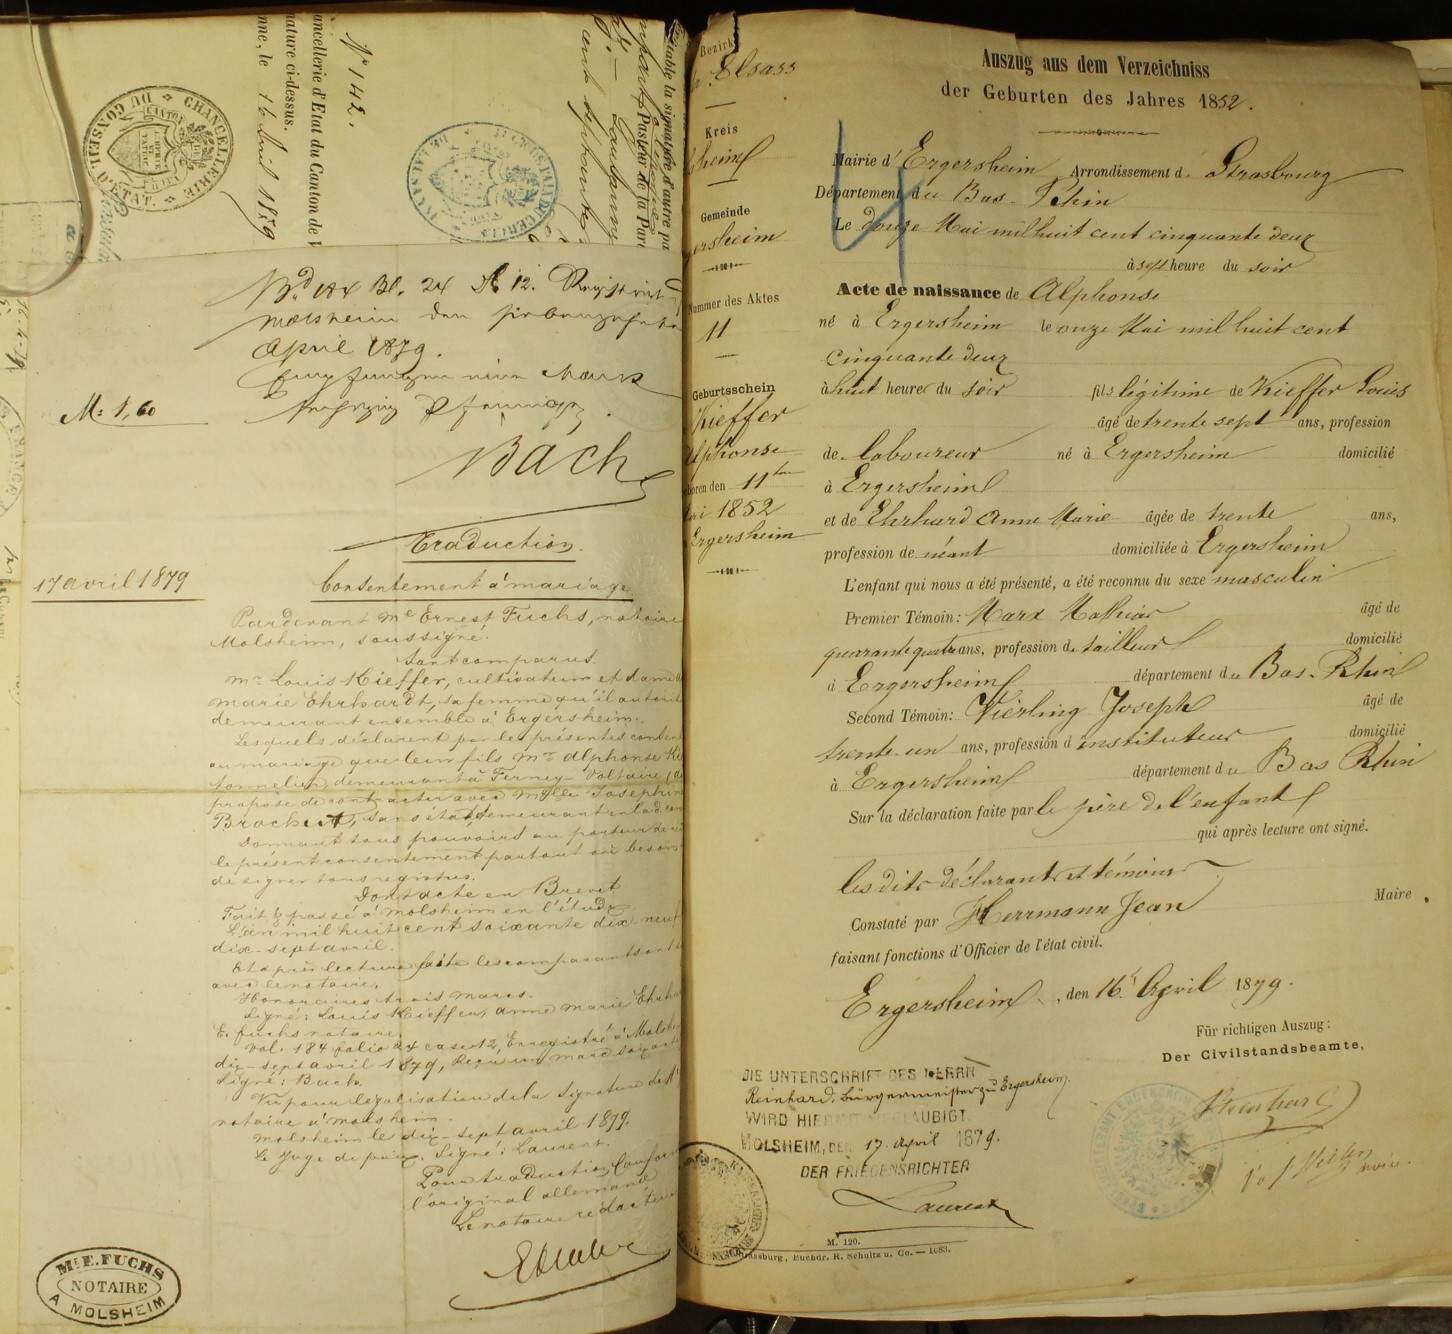 ancellerie d'Etat du Canton de V
nature ci-dessus.
nne, le 16 Avril 1879
N° 142.
itable la signature d'autre pa
Pasteur de la Par
CHANCELLERIE DU CONSEIL D'ETAT.
CANTON DE VAUD
LIBERTE ET PATRIE
Bd 184 Bl. 24 N. 12. Registrirt
Molsheim den siebenzehnten
April 1879.
Empfangen eine Mark
sechszig Pfennige.
M: 1,60
Bach
Traduction.
17 avril 1879
Consentement à mariage
Pardevant Me Ernest Fuchs, notaire
Molsheim, soussigné.
Sont comparus.
Mr Louis Kieffer, cultivateur et dame
Marie Ehrhardt, sa femme qu'il autorise
demeurant ensemble à Ergersheim.
Lesquels déclarent par les présentes consen
au mariage que leur fils Mr Alphonse Ki
tonnelier, demeurant à Ferney-Voltaire
propose de contracter avec Mlle Joséphin
Brochet, sans état, demeurant
Donnant tous pouvoirs au porteur de
le présent consentement partout où besoin
de signer tous registres.
Dont acte en Brevet
Fait & passé à Molsheim en l'étude
L'an mil huit cent soixante dix-neuf
dix-sept avril.
Et après lecture faite les comparants ont
avec le notaire.
Honoraires trois marcs.
Signé: Louis Kieffer, Anne Marie Ehrha
E. Fuchs notaire.
Vol. 184 folio 24 case 12, Enregistré à Molshe
dix-sept avril 1879, Reçu un marc soixante
Signé: Bach.
Vu pour légalisation de la signature de Me
notaire à Molsheim.
Molsheim le dix-sept avril 1879.
Le Juge de paix. Signé: Laurent.
Pour traduction conforme
l'original allemand
Le notaire rédacteur
Me E. FUCHS
NOTAIRE
A MOLSHEIM
Bezirk
Elsass
Kreis
sheim
Gemeinde
ersheim
Nummer des Aktes
11
Geburtsschein
Kieffer
Alphonse
boren den 11ten
Mai 1852
Ergersheim
Auszug aus dem Verzeichniss
der Geburten des Jahres 1852.
Mairie d'Ergersheim Arrondissement de Strasbourg
Département du Bas-Rhin
Le douze Mai mil huit cent cinquante deux
à sept heure du soir
Acte de naissance de Alphonse
né à Ergersheim le onze Mai mil huit cent
cinquante deux
à huit heure du soir fils légitime de Kieffer Louis
âgé de trente sept ans, profession
de laboureur né à Ergersheim domicilié
à Ergersheim
et de Ehrhard Anne Marie âgée de trente ans,
profession de néant domiciliée à Ergersheim
L'enfant qui nous a été présenté, a été reconnu du sexe masculin
Premier Témoin: Marx Mathias âgé de
quarante quatre ans, profession de tailleur domicilié
à Ergersheim département du Bas-Rhin
Second Témoin: Vierling Joseph âgé de
trente-un ans, profession d'instituteur domicilié
à Ergersheim département du Bas Rhin
Sur la déclaration faite par le père de l'enfant
qui après lecture ont signé.
les dits déclarant et témoins
Constaté par Herrmann Jean Maire
faisant fonctions d'Officier de l'état civil.
Ergersheim, den 16. April 1879.
Für richtigen Auszug:
Der Civilstandsbeamte,
Reinhard
DIE UNTERSCHRIFT DES HERRN
Reinhard, Bürgermeister zu Ergersheim
WIRD HIERMIT BEGLAUBIGT.
MOLSHEIM, DEN 17. April 1879.
DER FRIEDENSRICHTER
Laurent
M. 120.
Strassburg, Buchdr. R. Schultz u. Co. — 1083.